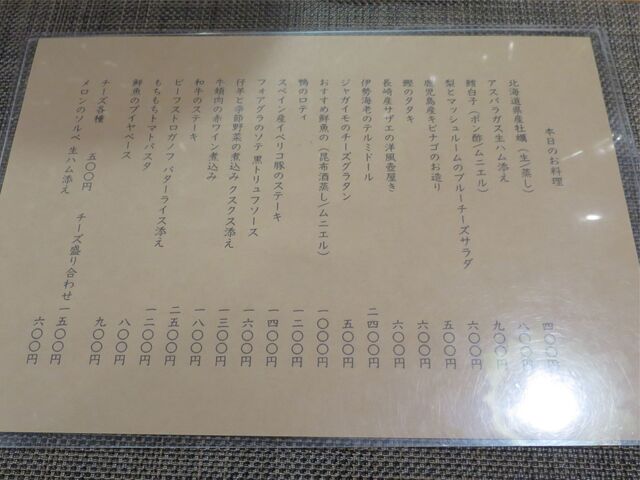 本日のお料理
北海道県産牡蠣（生/蒸し） 四〇〇円
アスパラガス生ハム添え 八〇〇円
鱈白子（ポン酢/ムニエル） 九〇〇円
梨とマッシュルームのブルーチーズサラダ 六〇〇円
鹿児島産キビナゴのお造り 五〇〇円
鰹のタタキ 六〇〇円
長崎産サザエの洋風壺屋き 六〇〇円
伊勢海老のテルミドール 二四〇〇円
ジャガイモのチーズグラタン 五〇〇円
おすすめ鮮魚の（昆布酒蒸し/ムニエル） 一〇〇〇円
鴨のロティ 一二〇〇円
スペイン産イベリコ豚のステーキ 一四〇〇円
フォアグラのソテ 黒トリュフソース 一六〇〇円
仔羊と季節野菜の煮込み クスクス添え 一三〇〇円
牛頬肉の赤ワイン煮込み 一八〇〇円
和牛のステーキ 二五〇〇円
ビーフストロガノフ バターライス添え 一二〇〇円
もちもちトマトパスタ 八〇〇円
鮮魚のブイヤベース 九〇〇円
チーズ各種 五〇〇円 チーズ盛り合わせ 一五〇〇円
メロンのソルベ 生ハム添え 六〇〇円